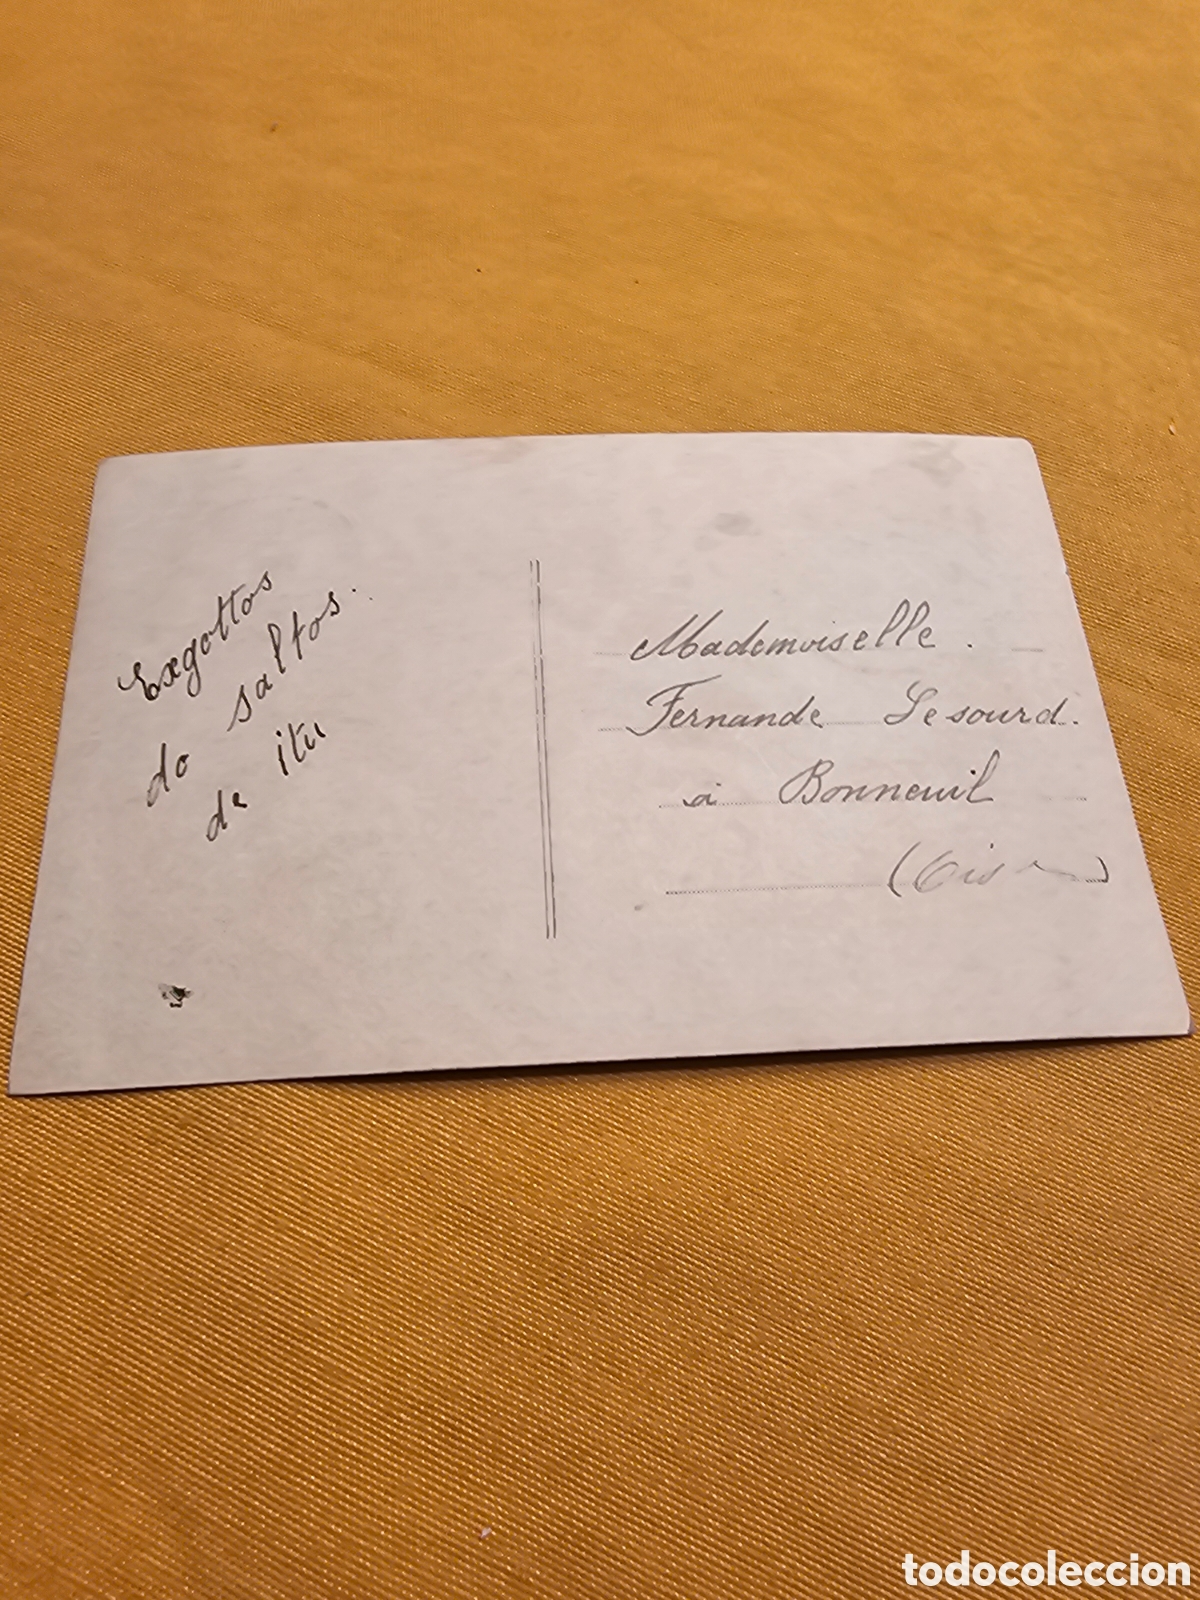 Exgottos
do saltos..
de itu
Mademoiselle.
Fernande Lesourd.
à Bonneuil
(Oise)
todocoleccion